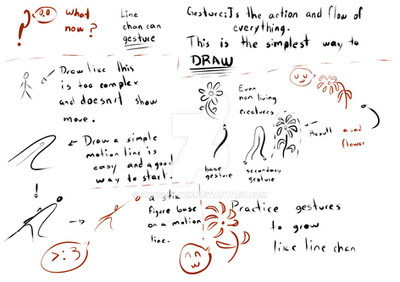 ? what
now?
Line
chan can
gesture
Gesture:Is the action and flow of
everything.
This is the simplest way to
DRAW
Draw like this
is too complex
and doesn't show
move.
Even
non living
creatures
Result
a sad
flower
Draw a simple
motion line is
easy and a good
way to start.
base
gesture
secondary
gesture
!
a stick
figure base
on a motion
line.
>:3
Practice gestures
to grow
like line chan